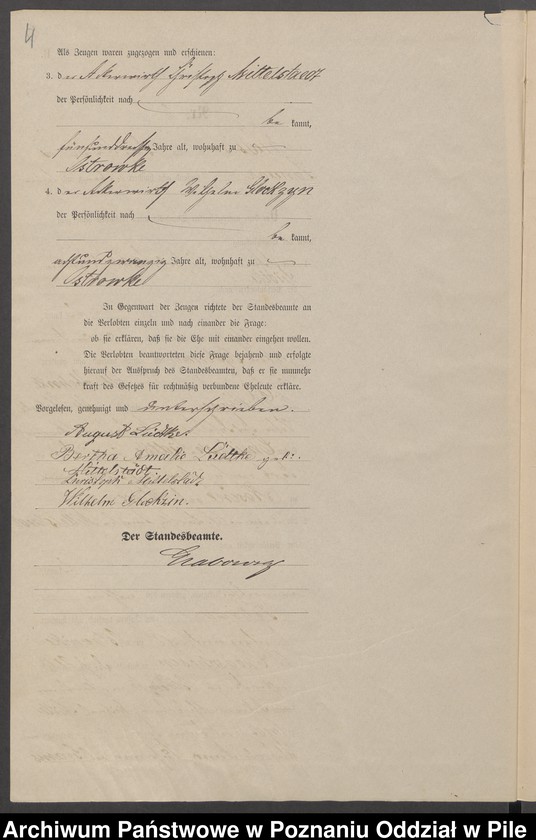 4
Als Zeugen waren zugezogen und erschienen:
3. der Ackerwirth Christoph Mittelstaedt
der Persönlichkeit nach
be kannt,
fünfunddreißig Jahre alt, wohnhaft zu
Ostrowke
4. der Ackerwirth Wilhelm Glockzyn
der Persönlichkeit nach
be kannt,
achtundzwanzig Jahre alt, wohnhaft zu
Ostrowke
In Gegenwart der Zeugen richtete der Standesbeamte an
die Verlobten einzeln und nach einander die Frage:
ob sie erklären, daß sie die Ehe mit einander eingehen wollen.
Die Verlobten beantworteten diese Frage bejahend und erfolgte
hierauf der Ausspruch des Standesbeamten, daß er sie nunmehr
kraft des Gesetzes für rechtmäßig verbundene Eheleute erkläre.
Vorgelesen, genehmigt und unterschrieben.
August Lüdtke.
Bertha Amalie Lüdtke geb.
Mittelstädt
Christoph Mittelstädt
Wilhelm Glockzin.
Der Standesbeamte.
Archiwum Państwowe w Poznaniu Oddział w Pile